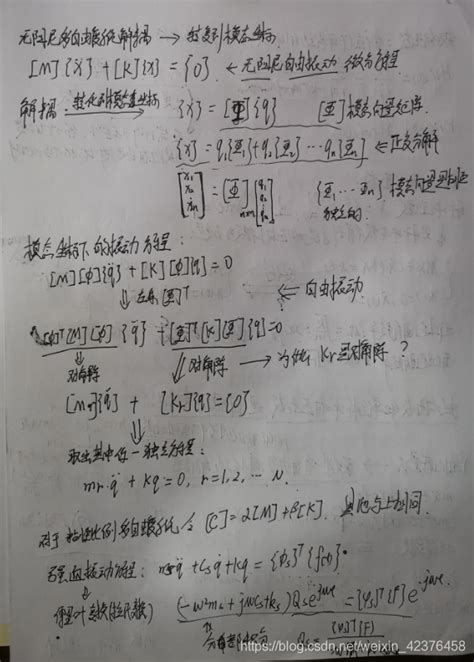 无阻尼多自由度系统解耦 → 转变到模态坐标
[M]{ẍ} + [K]{x} = {0} ← 无阻尼自由振动 微分方程
解耦: 转化到模态坐标 {x} = [Φ]{q} [Φ]模态向量矩阵
{x} = q₁{Φ₁}+q₂{Φ₂}…qₙ{Φₙ} ← 正交分解
[x₁ x₂ xₙ] = [Φ]ₙₓₙ [q₁ q₂ qₙ] {Φ₁…Φₙ}模态向量是
独立的.
模态坐标下的振动方程:
[M][Φ]{q̈} + [K][Φ]{q}=0
⇓ 左乘[Φ]ᵀ ⇐ 自由振动
[Φ]ᵀ[M][Φ]{q̈} + [Φ]ᵀ[K][Φ]{q}=0
⇓ 对角阵 ⇓ 对角阵 → 为什么 Kr是对角阵 ?
[Mr]{q̈} + [Kr]{q}={0}
⇓
取出其中任一独立方程:
mr·q̈ + kq = 0, r=1,2,… N.
对于粘性比例多自由度系统 [C]=α[M]+β[K], 其他与上相同.
强迫振动方程: q̈ + q̇+kq = {Φs}ᵀ{f(t)}
⇓
傅里叶变换
(-ω²ms + jωcs+ks)Qs e^jωt = {φs}ᵀ{F}e^jωt
Qs =
https://blog.csdn.net/weixin_42376458